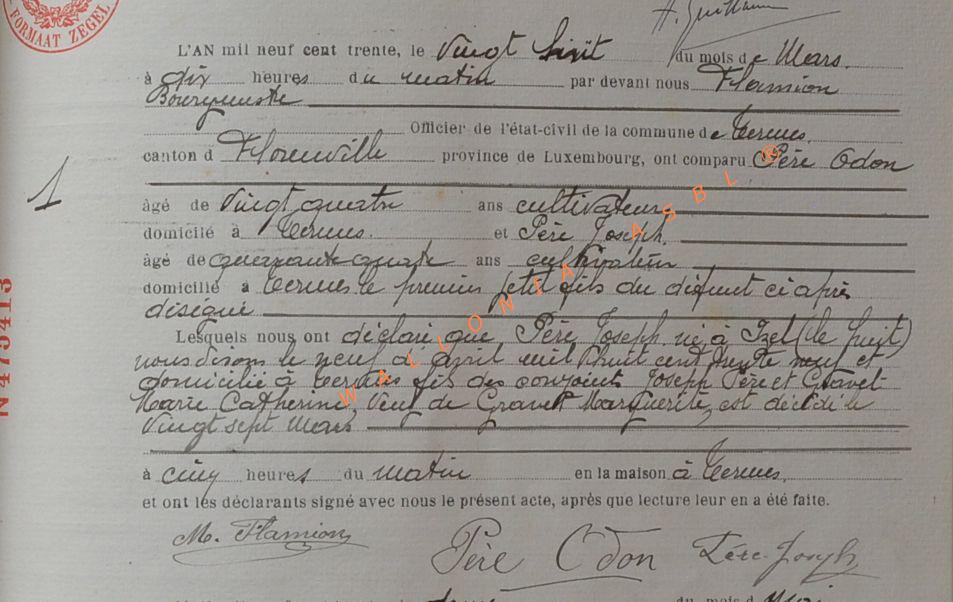 FORMAAT ZEGEL
L'AN mil neuf cent trente, le Vingt huit du mois de Mars.
à dix heures du matin par devant nous Flamion
Bourgmestre
Officier de l'état-civil de la commune de Termes.
canton d Florenville province de Luxembourg, ont comparu Père Odon
1
âgé de Vingt quatre ans cultivateurs
domicilié à Termes. et Père Joseph.
âgé de quarante quatre ans cultivateur
domicilié à Termes le premier petit fils du défunt ci après
désigné
N475413
Lesquels nous ont déclaré que Père Joseph né à Izel (le huit)
nous disons le neuf d avril mil huit cent trente neuf et
domicilié à Termes fils des conjoints Joseph Père et Gravet
Marie Catherine, Veuf de Gravet Marguerite, est décédé le
Vingt sept Mars
à cinq heures du matin en la maison à Termes.
et ont les déclarants signé avec nous le présent acte, après que lecture leur en a été faite.
M. Flamion Père Odon Père Joseph
du mois d Mai
WALLONIA ASBL ©